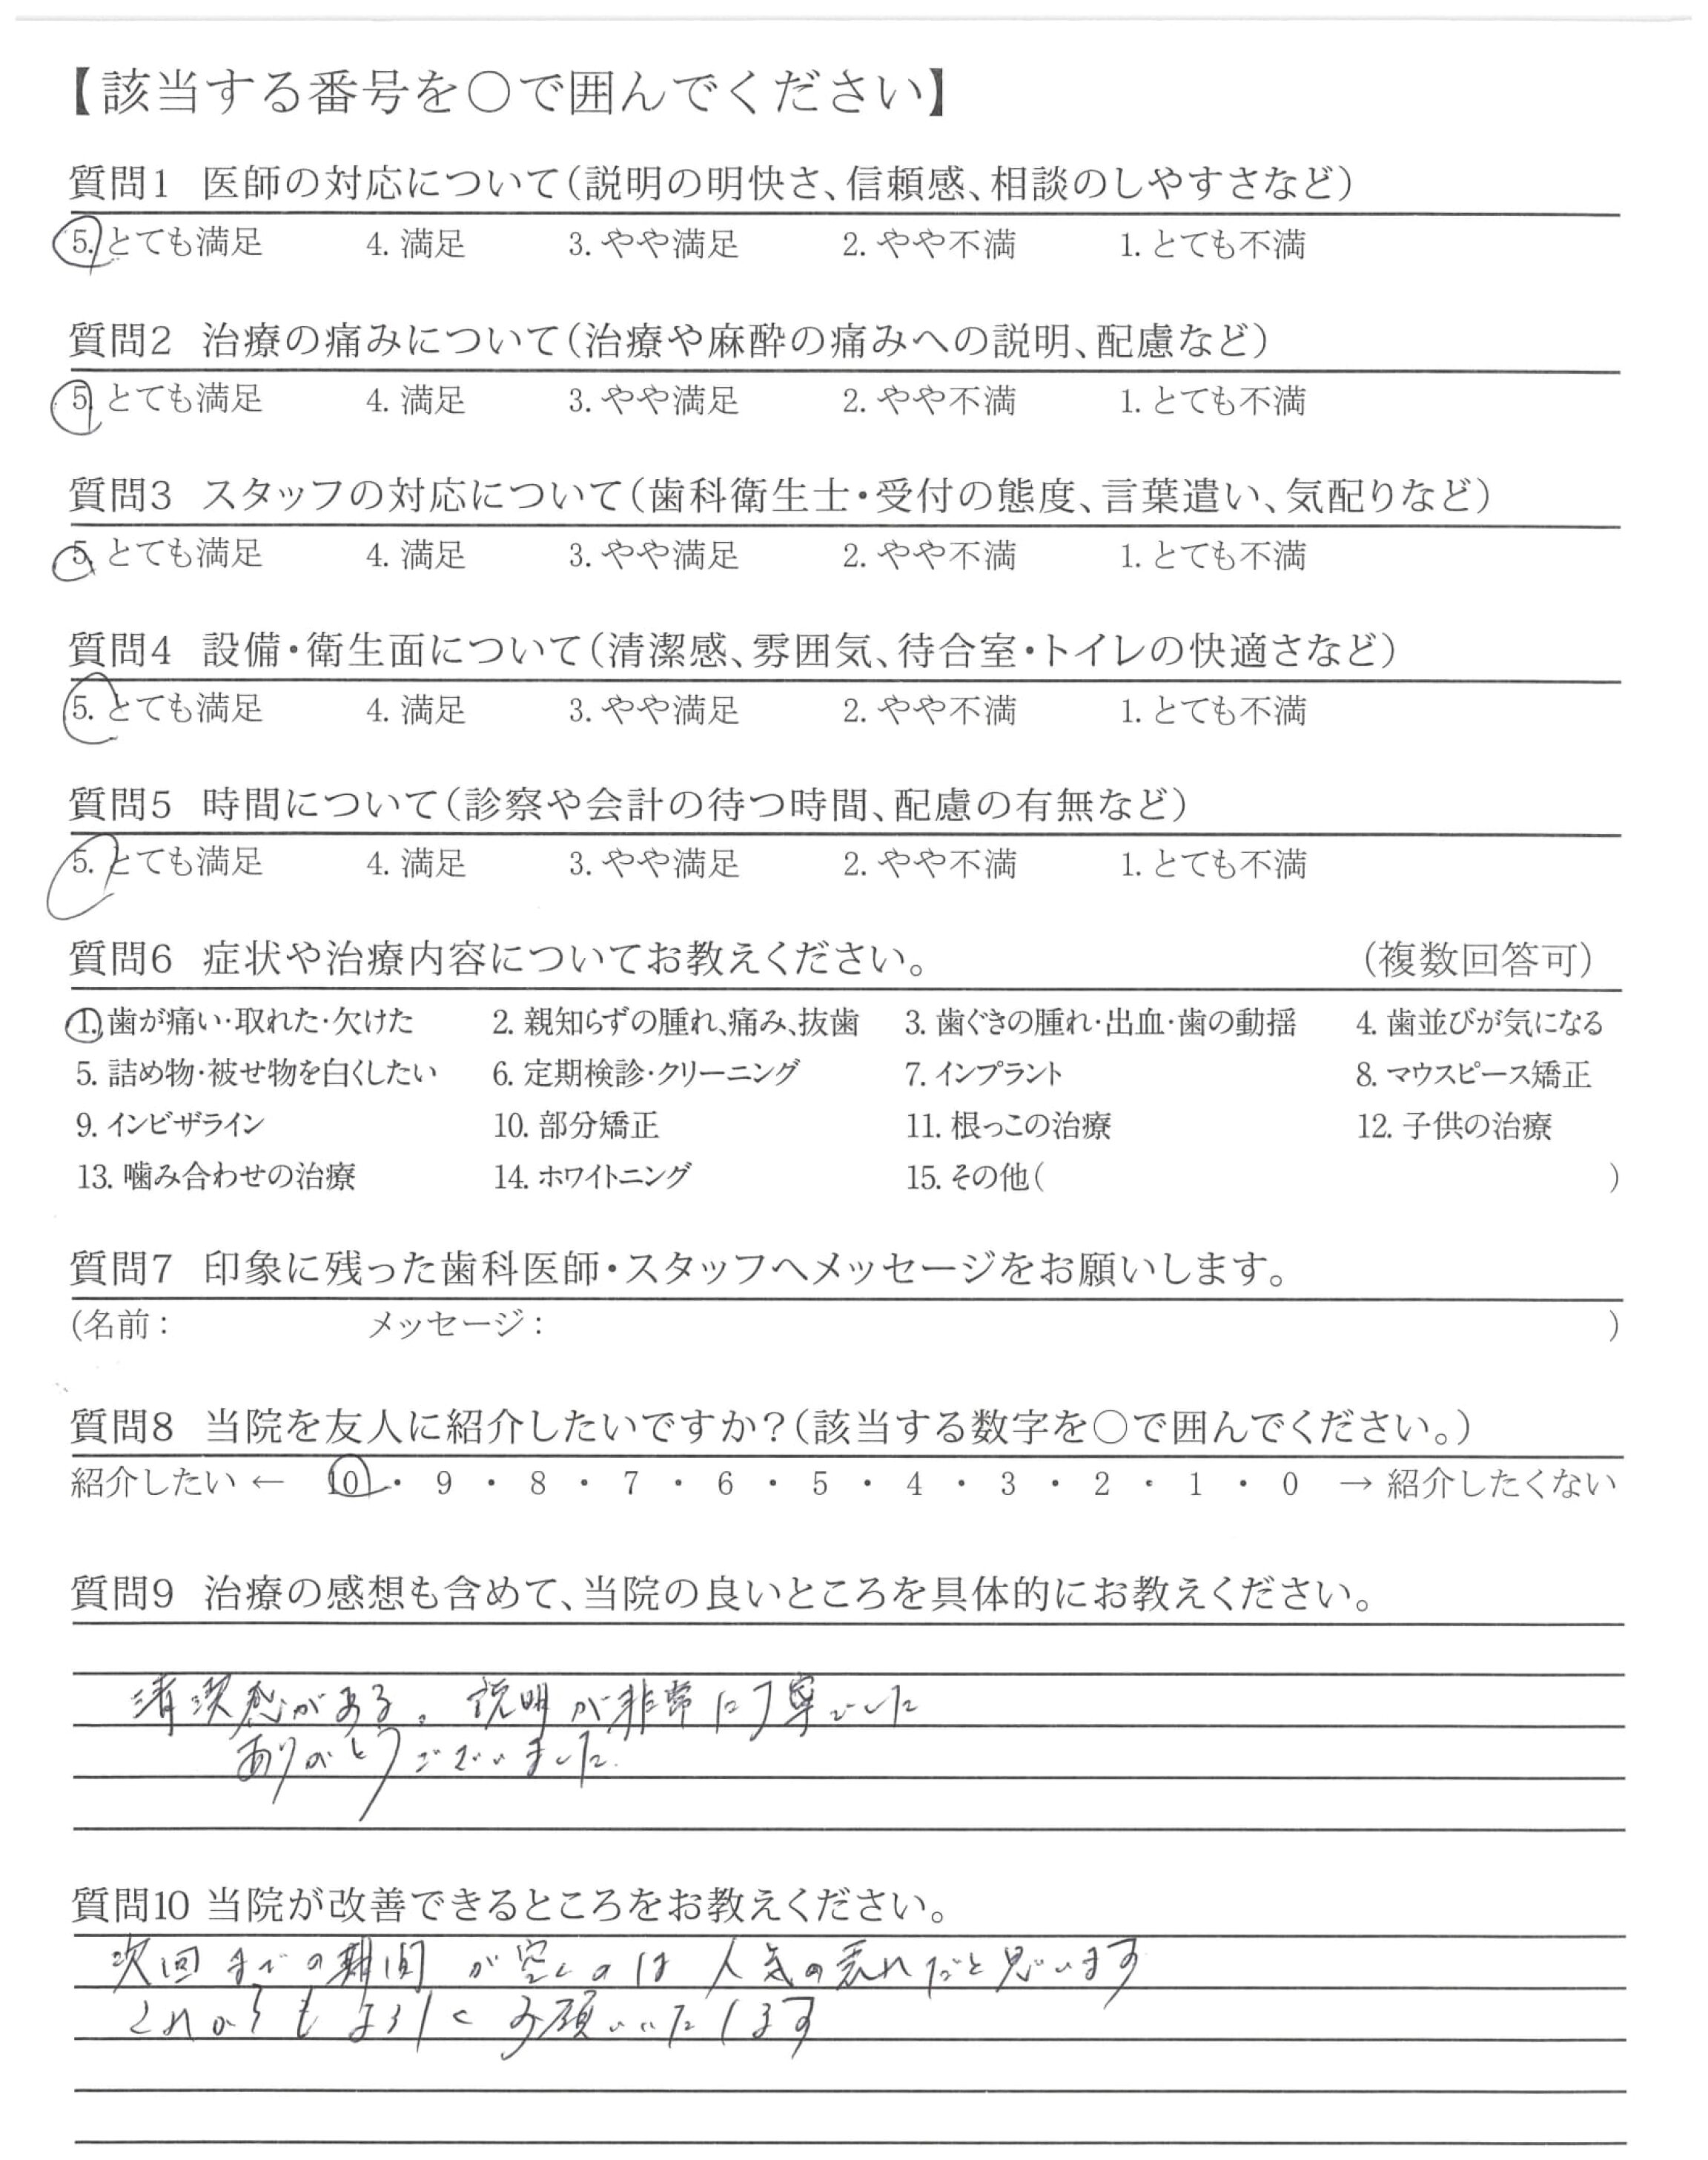 【該当する番号を○で囲んでください】
質問1 医師の対応について(説明の明快さ、信頼感、相談のしやすさなど)
5. とても満足 4. 満足 3. やや満足 2. やや不満 1. とても不満
質問2 治療の痛みについて(治療や麻酔の痛みへの説明、配慮など)
5 とても満足 4. 満足 3. やや満足 2. やや不満 1. とても不満
質問3 スタッフの対応について(歯科衛生士・受付の態度、言葉遣い、気配りなど)
5. とても満足 4. 満足 3. やや満足 2. やや不満 1. とても不満
質問4 設備・衛生面について(清潔感、雰囲気、待合室・トイレの快適さなど)
5. とても満足 4. 満足 3. やや満足 2. やや不満 1. とても不満
質問5 時間について(診察や会計の待つ時間、配慮の有無など)
5. とても満足 4. 満足 3. やや満足 2. やや不満 1. とても不満
質問6 症状や治療内容についてお教えください。 (複数回答可)
1. 歯が痛い・取れた・欠けた 2. 親知らずの腫れ、痛み、抜歯 3. 歯ぐきの腫れ・出血・歯の動揺 4. 歯並びが気になる
5. 詰め物・被せ物を白くしたい 6. 定期検診・クリーニング 7. インプラント 8. マウスピース矯正
9. インビザライン 10. 部分矯正 11. 根っこの治療 12. 子供の治療
13. 噛み合わせの治療 14. ホワイトニング 15. その他( )
質問7 印象に残った歯科医師・スタッフへメッセージをお願いします。
(名前: メッセージ: )
質問8 当院を友人に紹介したいですか?(該当する数字を○で囲んでください。)
紹介したい ← 10 ・ 9 ・ 8 ・ 7 ・ 6 ・ 5 ・ 4 ・ 3 ・ 2 ・ 1 ・ 0 → 紹介したくない
質問9 治療の感想も含めて、当院の良いところを具体的にお教えください。
清潔感がある。説明が非常に丁寧でした
ありがとうございました.
質問10 当院が改善できるところをお教えください。
次回までの期間が空くのは人気の表れだと思います
これからもよろしくお願いいたします